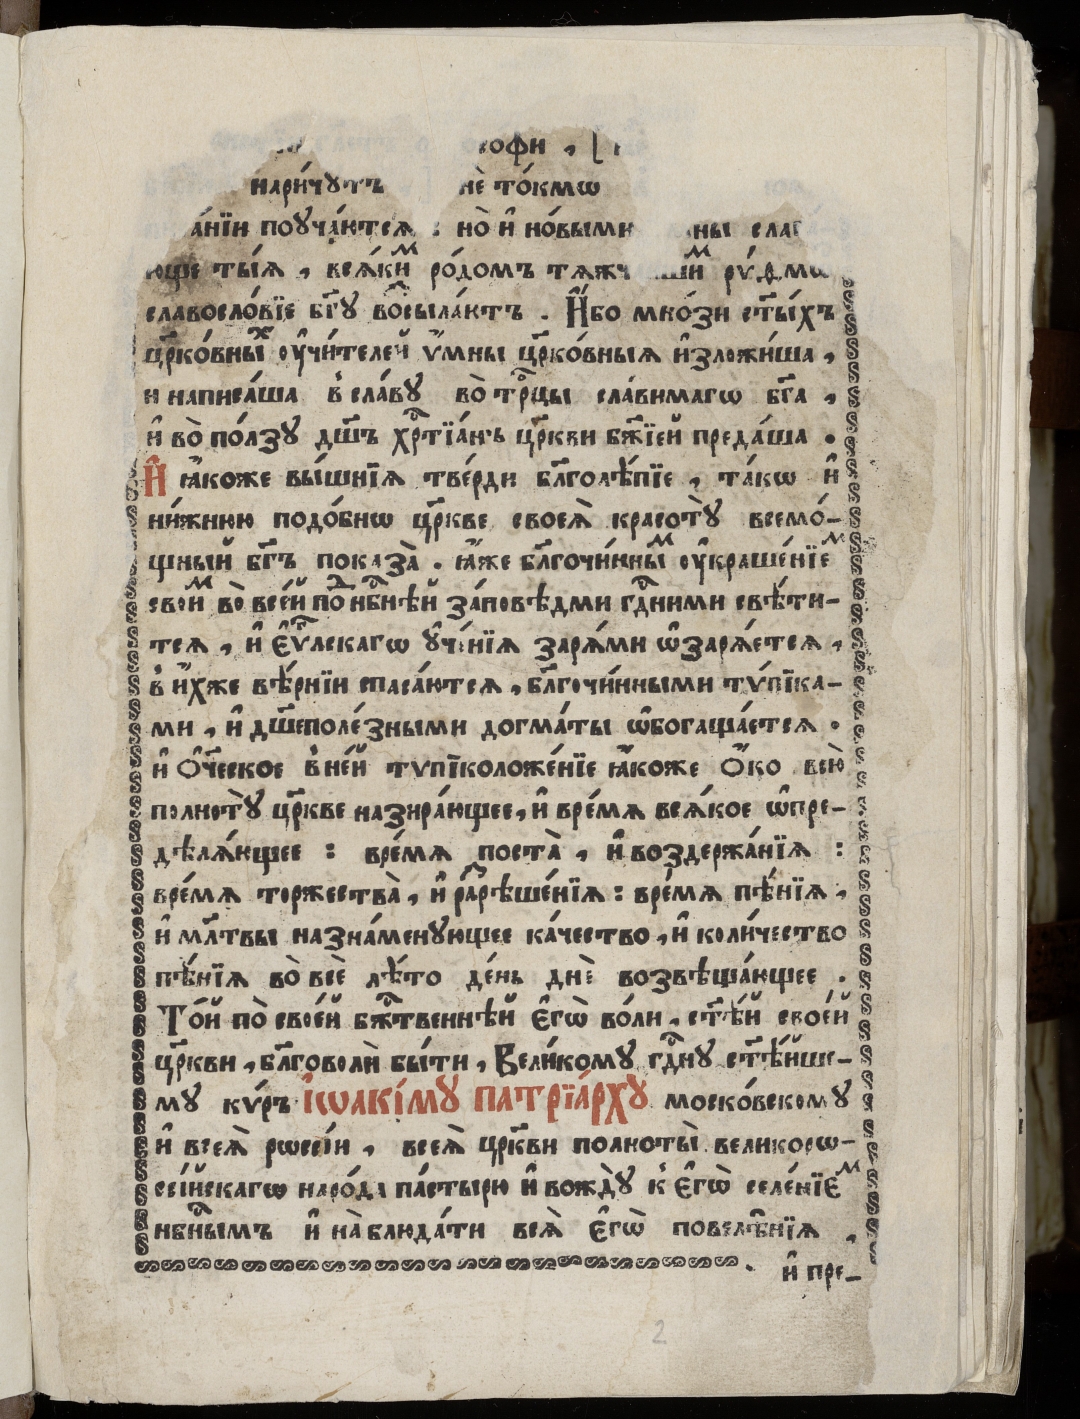 нари́чꙋтъ нѐ то́кмѡ
поꙋча́ютсѧ : но̀ и҆ но́выми
ющє ты́ѧ , всѧ́киⷨ ро́домъ
славосло́вїе бг҃ꙋ восⷭ҇ыла́ютъ . И҆́бо мно́зи ст҃ы́хъ
цр҃ко́вныⷯ ѹ҆чи́телей ѵ҆́мны цр҃ко́вныѧ и҆зложи́ша ,
и написа́ша в̾ сла́вꙋ во̀ трⷪ҇цы сла́вимагѡ бг҃а ,
и҆ во̀ по́лзꙋ дш҃ъ хрⷭ҇тїа́нъ цр҃кви бж҃їей преда́ша .
И҆ ꙗ҆́коже вы́шнїѧ тве́рди бл҃голѣ́пїе , та́кѡ и҆
ни́жнюю подо́бнѡ цр҃кве своеѧ̀ красотꙋ̀ всемо́-
щный бг҃ъ показа̀ . ꙗ҆́же бл҃гочи́нныⷨ ѹ҆краше́нїеⷨ
свои́ⷨ во̀ все́й поⷣнбⷭ҇нѣй за́повѣдми гдⷭ҇ними свѣ́ти-
тсѧ , и҆ є҆ѵⷢ҇лскагѡ ᲂу҆че́нїѧ зарѧ́ми ѡ҆зарѧ́етсѧ ,
в̾ и҆́хже вѣ́рнїи спаса́ютсѧ , бл҃гочи́нными тѵ́пїка-
ми , и҆ дш҃еполе́зными догма́ты ѡ҆богаща́етсѧ .
и҆ ѻ҆́ч҃еское в̾ не́й тѵпїкоположе́нїе ꙗ҆́коже ѻ҆́ко всю̀
полнотꙋ̀ цр҃кве назира́ющее , и҆ вре́мѧ всѧ́кое ѡ҆пре-
дѣлѧ́ющее : вре́мѧ поста̀ , и҆ воздержа́нїѧ :
вре́мѧ торжества̀ , и҆ раⷥрѣше́нїѧ : вре́мѧ пѣ́нїѧ ,
и҆ мл҃твы назна́менꙋющее ка́чество , и҆ коли́чество
пѣ́нїѧ во̀ всѐ лѣ́то де́нь днѐ возвѣща́ющее .
То́й по̀ свое́й бжⷭ҇твеннѣй є҆гѡ̀ во́ли , ст҃ѣ́й свое́й
цр҃кви , бл҃говолѝ бы́ти , Вели́комꙋ гдⷭ҇нꙋ ст҃ѣ́йше-
мꙋ кѵ́ръ і҆ѡаки́мꙋ патрїа́рхꙋ моско́вскомꙋ
и҆ всеѧ̀ рѡссі́и , всеѧ̀ цр҃кви полноты̀ великорѡ-
ссі́йскагѡ наро́да па́стырю и҆ вождꙋ̀ к̾ є҆гѡ̀ селе́нїеⷨ
нбⷭ҇нымъ и҆ на̀блюда́ти всѧ̀ є҆гѡ̀ повелѣ̑нїѧ ,
и҆ пре-
2